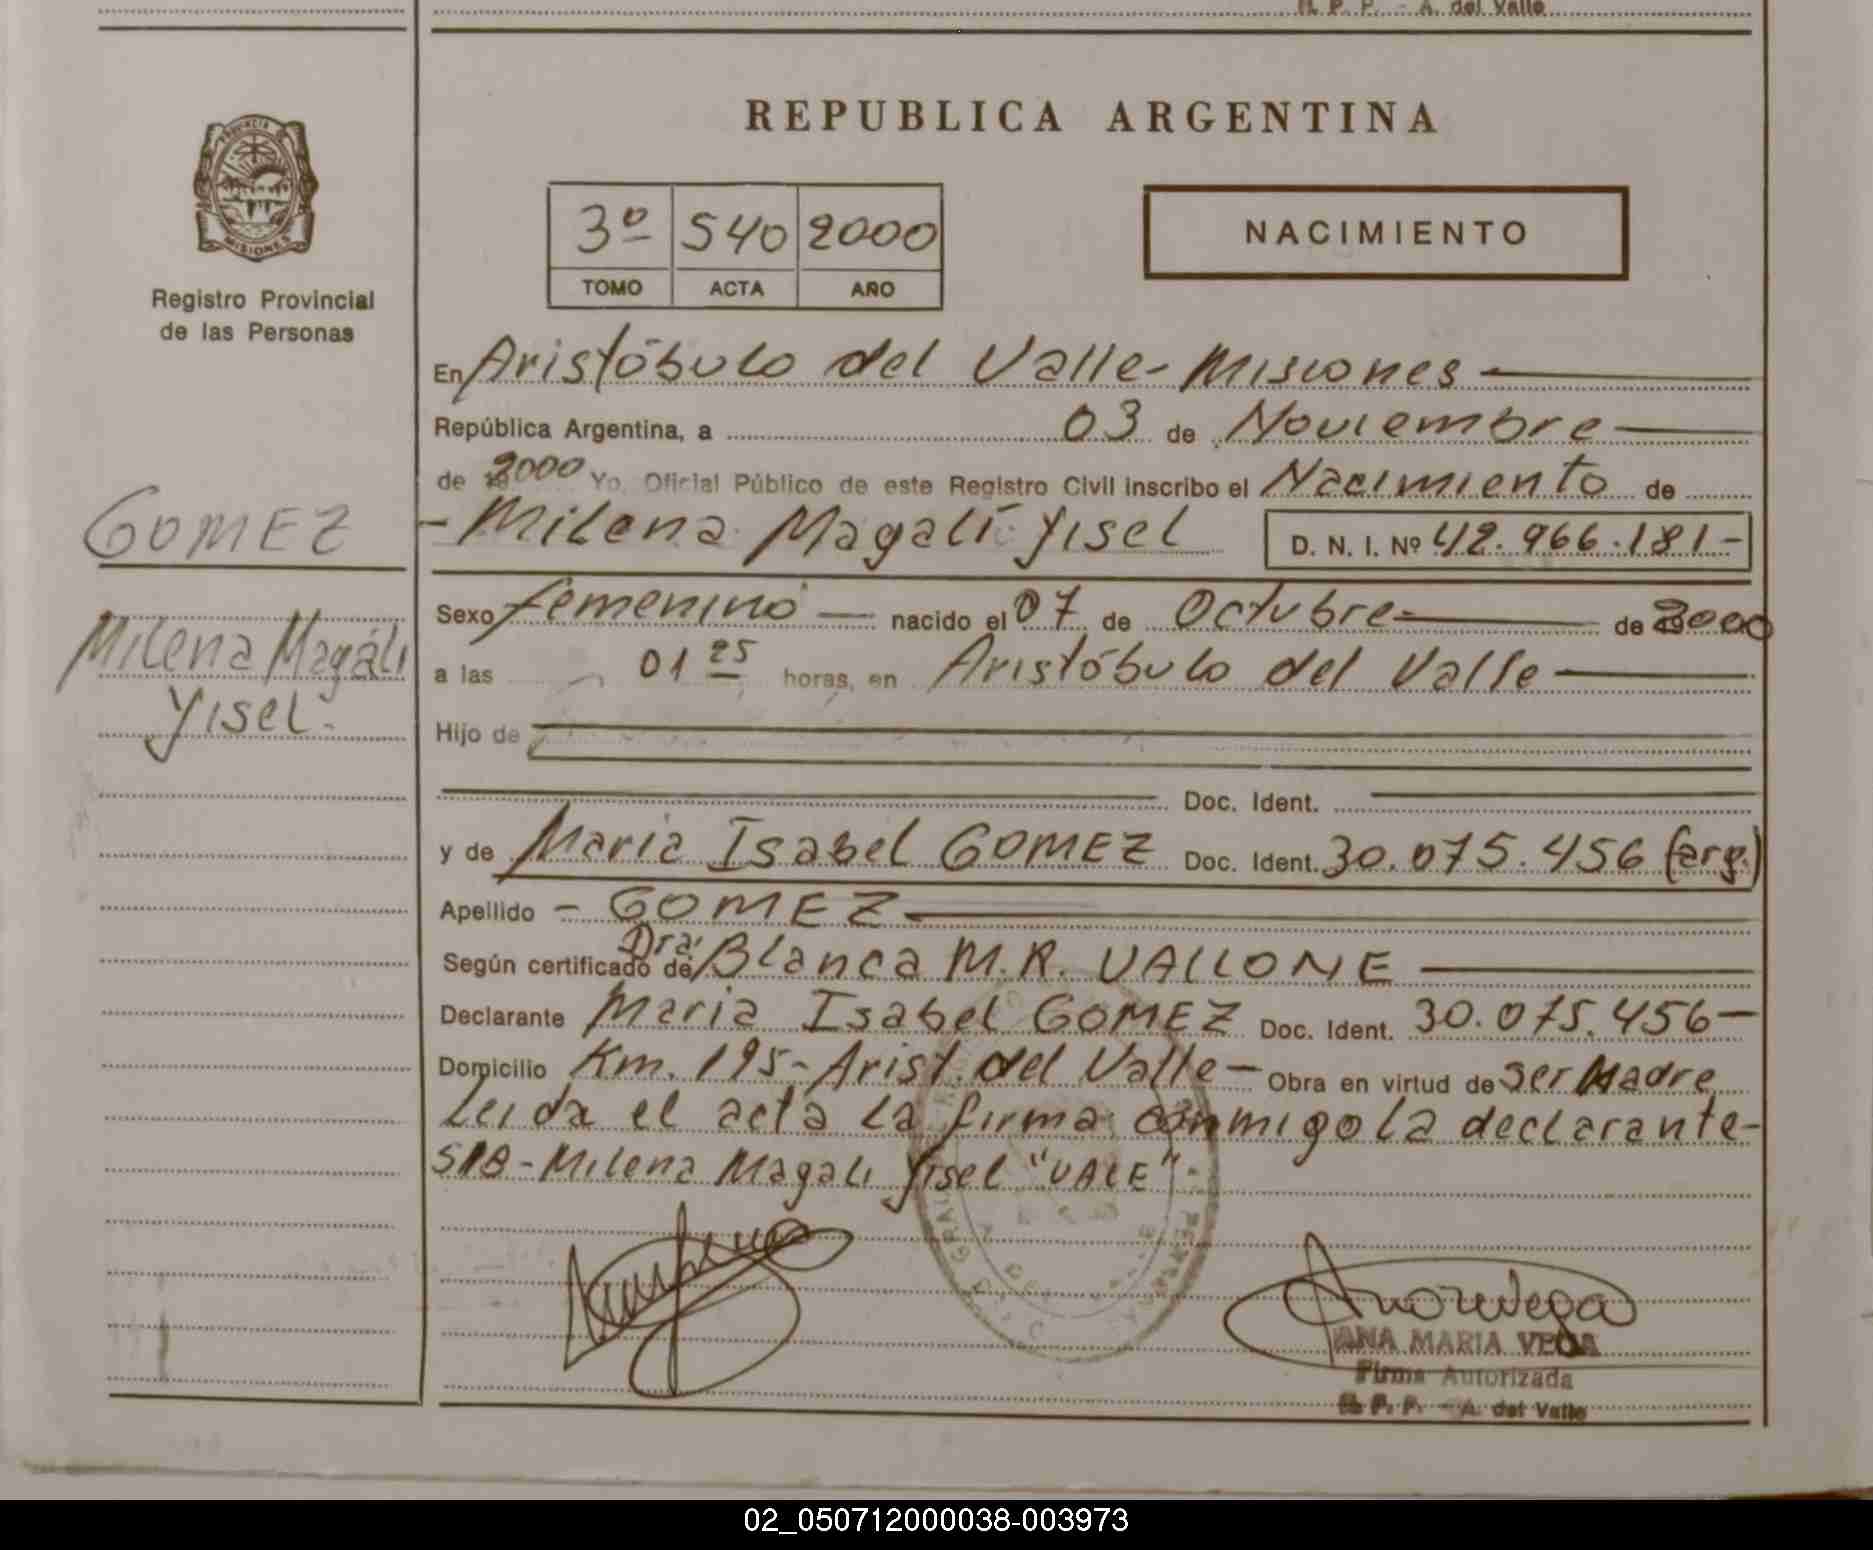 R. P. P. - A. del Valle
REPUBLICA ARGENTINA
PROVINCIA DE
MISIONES
Registro Provincial
de las Personas
3º 540 2000
TOMO ACTA AÑO
NACIMIENTO
En Aristóbulo del Valle - Misiones
República Argentina, a 03 de Noviembre
de 2000 Yo, Oficial Público de este Registro Civil inscribo el Nacimiento de
GOMEZ
- Milena Magalí Yisel D. N. I. Nº 42.966.181-
Milena Magáli
Yisel.
Sexo femenino nacido el 07 de Octubre de 2000
a las 01 25 horas, en Aristóbulo del Valle
Hijo de
Doc. Ident.
y de Maria Isabel GOMEZ Doc. Ident. 30.075.456 (arg.)
Apellido - GOMEZ
Según certificado de Dra. Blanca M.R. VALLONE
Declarante Maria Isabel GOMEZ Doc. Ident. 30.075.456-
Domicilio Km. 195 - Arist. del Valle - Obra en virtud de ser Madre
Leida el acta la firma conmigo la declarante-
S/B - Milena Magali Yisel "VALE".
ANA MARIA VEGA
Firma Autorizada
R. P. P. - A. del Valle
02_050712000038-003973